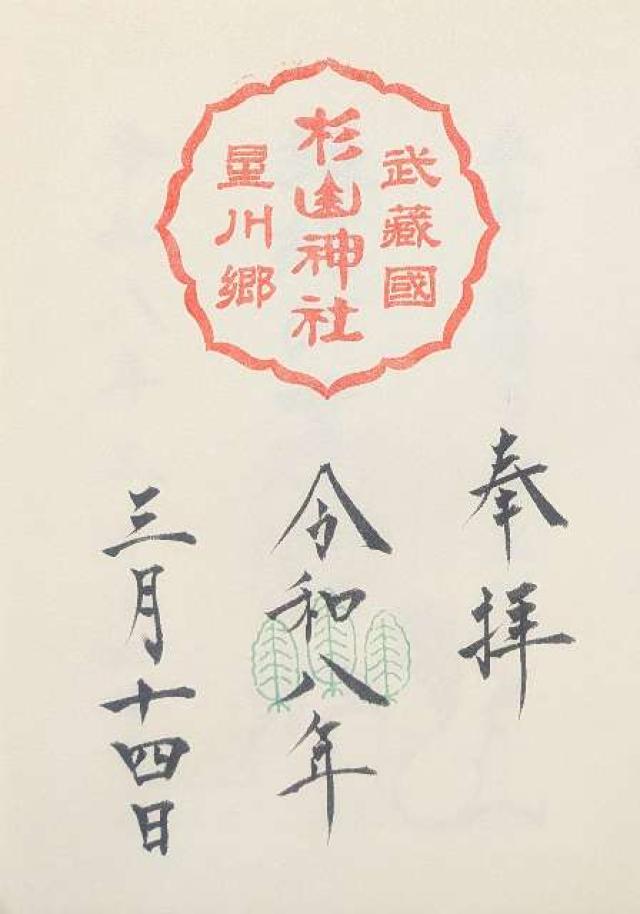 武藏國
杉山神社
星川郷
奉拝
令和八年
三月十四日